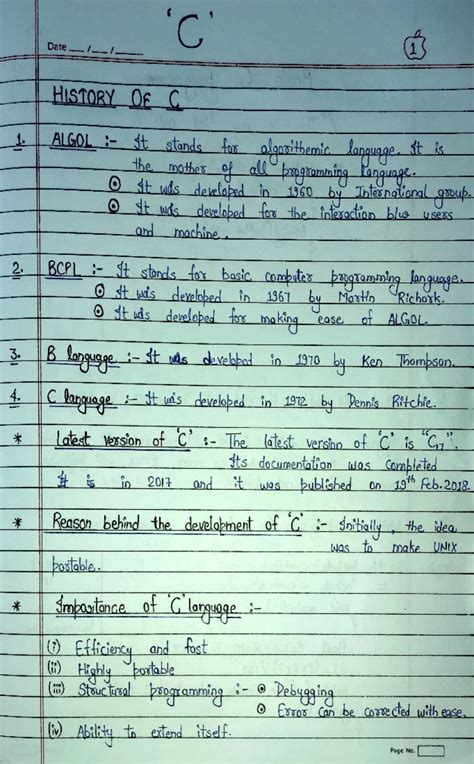 'C'
Date __/__/__
1
HISTORY OF C
1. ALGOL :- It stands for algorithemic language. It is
the mother of all programming language.
⊙ It was developed in 1960 by International group.
⊙ It was developed for the interaction b/w users
and machine.
2. BCPL :- It stands for basic computer programming language.
⊙ It was developed in 1967 by Martin Richork.
⊙ It was developed for making ease of ALGOL.
3. B language :- It was developed in 1970 by Ken Thompson.
4. C language :- It was developed in 1972 by Dennis Ritchie.
* Latest version of 'C' :- The latest version of 'C' is "C17".
Its documentation was completed
It is in 2017 and it was published on 19th Feb. 2018.
* Reason behind the development of 'C' :- Initially, the idea
was to make UNIX
portable.
* Importance of 'C' language :-
(i) Efficiency and fast
(ii) Highly portable
(iii) Structural programming :- ⊙ Debugging
⊙ Error can be corrected with ease.
(iv) Ability to extend itself.
Page No.